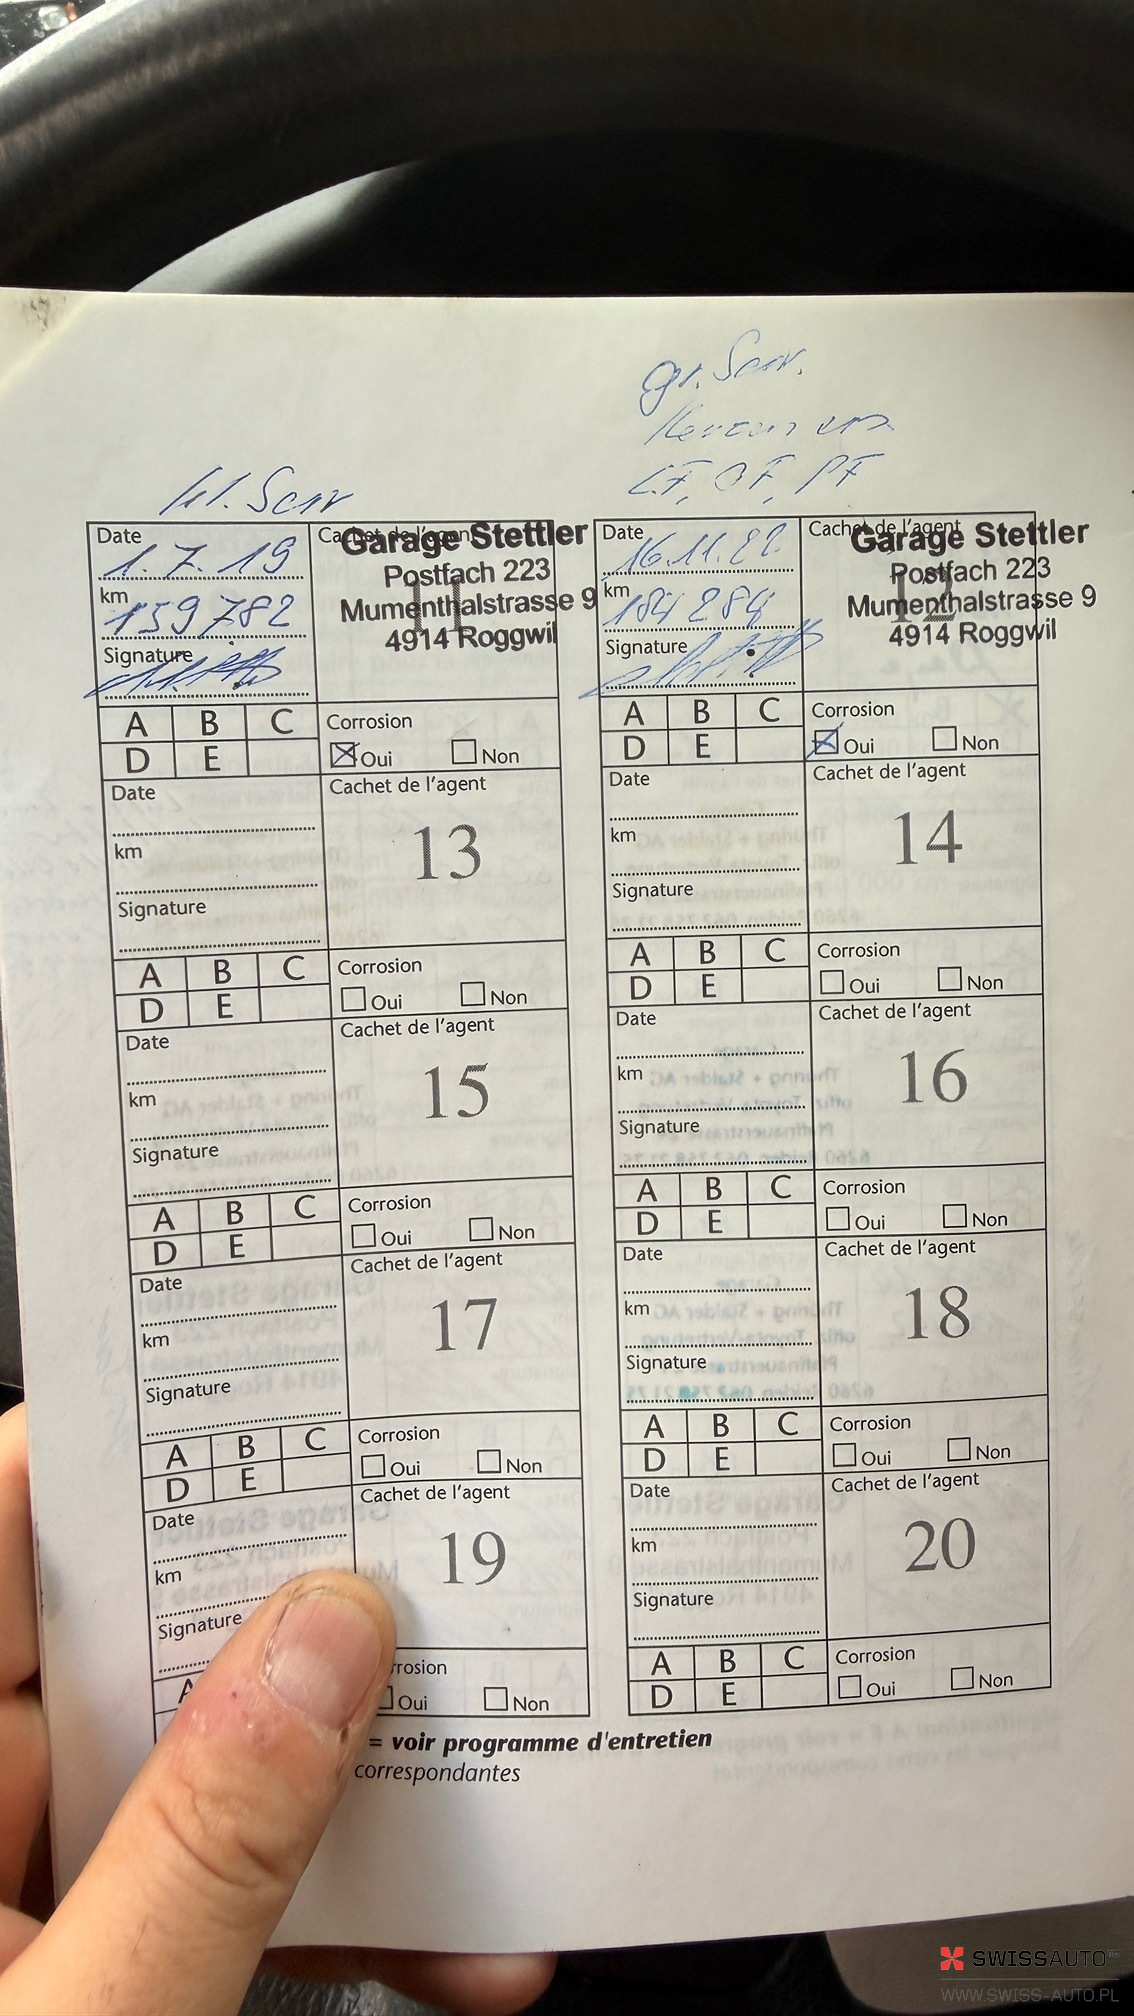 gr. Serv.
LF, OF, PF
kl. Serv
Date
1.7.19
km
159 782
Signature
Cachet de l'agent
11
Garage Stettler
Postfach 223
Mumenthalstrasse 9
4914 Roggwil
A B C
D E
Corrosion
Oui Non
Date
16.11.22
km
184 284
Signature
Cachet de l'agent
12
Garage Stettler
Postfach 223
Mumenthalstrasse 9
4914 Roggwil
A B C
D E
Corrosion
Oui Non
Date
km
Signature
Cachet de l'agent
13
A B C
D E
Corrosion
Oui Non
Date
km
Signature
Cachet de l'agent
14
A B C
D E
Corrosion
Oui Non
Date
km
Signature
Cachet de l'agent
15
A B C
D E
Corrosion
Oui Non
Date
km
Signature
Cachet de l'agent
16
A B C
D E
Corrosion
Oui Non
Date
km
Signature
Cachet de l'agent
17
A B C
D E
Corrosion
Oui Non
Date
km
Signature
Cachet de l'agent
18
A B C
D E
Corrosion
Oui Non
Date
km
Signature
Cachet de l'agent
19
A
rrosion
Oui Non
Date
km
Signature
Cachet de l'agent
20
A B C
D E
Corrosion
Oui Non
= voir programme d'entretien
correspondantes
SWISSAUTO™
WWW.SWISS-AUTO.PL